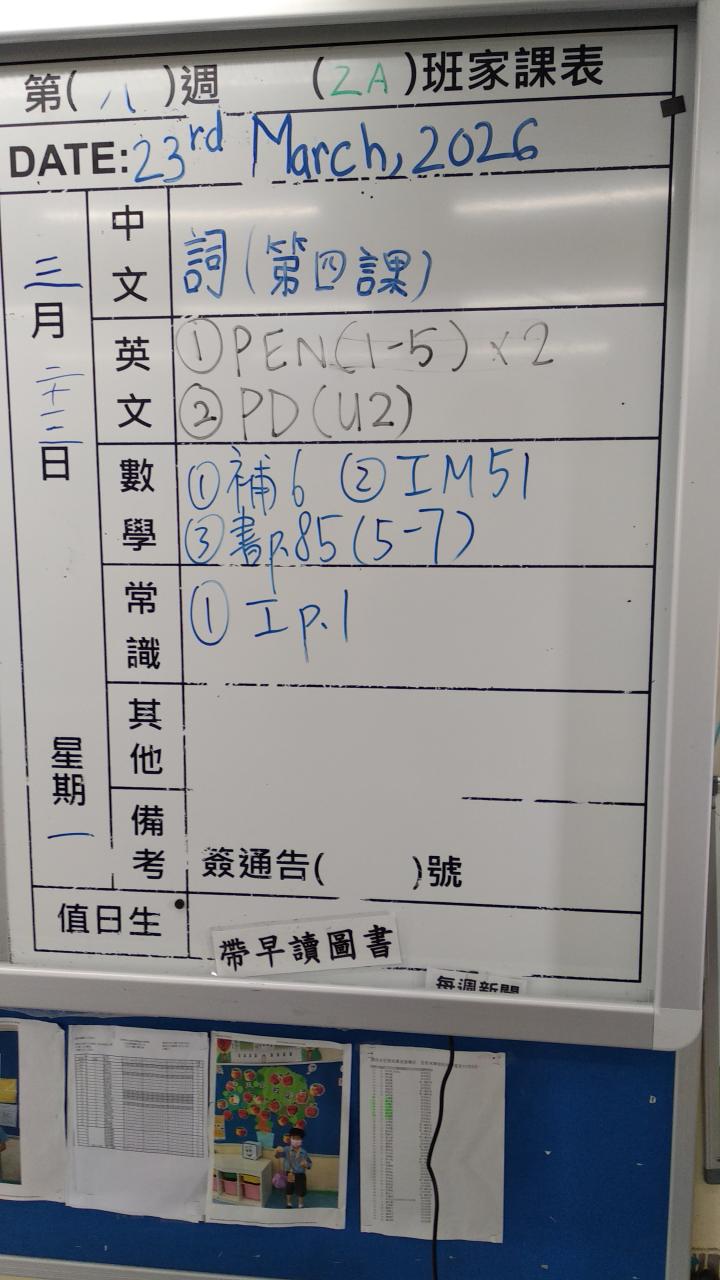 第(八)週 (2A)班家課表
DATE: 23rd March, 2026
三月二十三日 星期一
中文 詞(第四課)
英文 ①PEN(1-5)×2
②PD(U2)
數學 ①補6 ②IM51
③書p.85(5-7)
常識 ①工p.1
其他
備考 簽通告( )號
值日生
帶早讀圖書
每週新聞